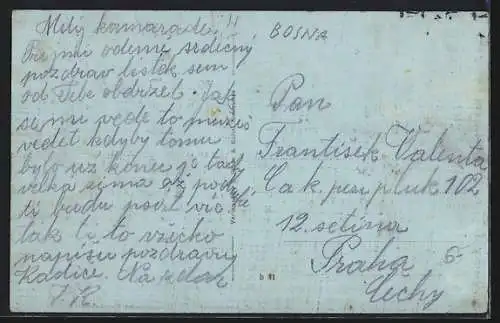 Milý kamaráde!!
Přijmi odemě srdečný
pozdrav lístek sem
od Tebe obdržel. Jak
se mi vede to můžeš
vědět kdyby tomu
bylo už konec je tady
velká zima až
ti budu psát víc
tak ti to všicko
napíšu pozdravuj
Na zdar
J. K.
BOSNA
Pan
František Valenta
C a k pěší pluk 102
12. setina
Praha
Čechy
6-